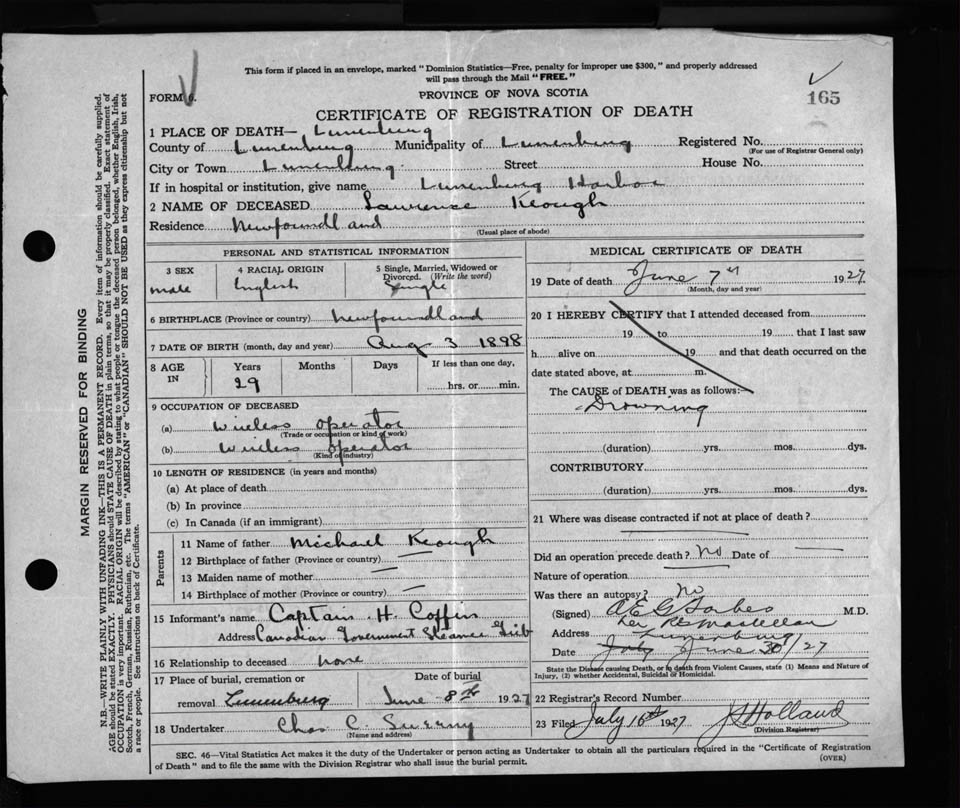 This form if placed in an envelope, marked "Dominion Statistics—Free, penalty for improper use $300," and properly addressed
will pass through the Mail "FREE."
PROVINCE OF NOVA SCOTIA
FORM 6.
165
CERTIFICATE OF REGISTRATION OF DEATH
1 PLACE OF DEATH— Lunenburg
County of Lunenburg Municipality of Lunenburg Registered No.
(For use of Registrar General only)
City or Town Lunenburg Street House No.
If in hospital or institution, give name Lunenburg Harbor
2 NAME OF DECEASED Lawrence Keough
Residence Newfoundland
(Usual place of abode)
PERSONAL AND STATISTICAL INFORMATION
3 SEX 4 RACIAL ORIGIN 5 Single, Married, Widowed or
Divorced. (Write the word)
male English Single
6 BIRTHPLACE (Province or country) Newfoundland
7 DATE OF BIRTH (month, day and year) Aug 3 1898
8 AGE IN Years Months Days If less than one day,
29 hrs. or min.
9 OCCUPATION OF DECEASED
(a) Wireless operator
(Trade or occupation or kind of work)
(b) Wireless operator
(Kind of industry)
10 LENGTH OF RESIDENCE (in years and months)
(a) At place of death
(b) In province
(c) In Canada (if an immigrant)
Parents
11 Name of father Michael Keough
12 Birthplace of father (Province or country)
13 Maiden name of mother
14 Birthplace of mother (Province or country)
15 Informant's name Captain H. Coffin
Address Canadian Government Steamer
16 Relationship to deceased none
17 Place of burial, cremation or Date of burial
removal Lunenburg June 8th 1927
18 Undertaker Chas C.
(Name and address)
MEDICAL CERTIFICATE OF DEATH
19 Date of death June 7th 1927
(Month, day and year)
20 I HEREBY CERTIFY that I attended deceased from
19 to 19 that I last saw
h alive on 19 and that death occurred on the
date stated above, at m.
The CAUSE of DEATH was as follows:
Drowning
(duration) yrs. mos. dys.
CONTRIBUTORY
(duration) yrs. mos. dys.
21 Where was disease contracted if not at place of death?
Did an operation precede death? No Date of
Nature of operation
Was there an autopsy? No
(Signed) M.D.
Address Lunenburg
Date July June 30/27
State the Disease causing Death, or in death from Violent Causes, state (1) Means and Nature of
Injury, (2) whether Accidental, Suicidal or Homicidal.
22 Registrar's Record Number
23 Filed July 16th 1927 Holland
(Division Registrar)
SEC. 46—Vital Statistics Act makes it the duty of the Undertaker or person acting as Undertaker to obtain all the particulars required in the "Certificate of Registration
of Death" and to file the same with the Division Registrar who shall issue the burial permit.
(OVER)
MARGIN RESERVED FOR BINDING
N.B.—WRITE PLAINLY WITH UNFADING INK—THIS IS A PERMANENT RECORD. Every item of information should be carefully supplied.
AGE should be stated EXACTLY. PHYSICIANS should STATE CAUSE OF DEATH in plain terms, so that it may be properly classified. Exact statement of
OCCUPATION is very important. RACIAL ORIGIN will be described by stating to what people or tongue the deceased person belonged, whether English, Irish,
Scotch, French, German, Russian, Ruthenian, etc. The terms "AMERICAN" or "CANADIAN" SHOULD NOT BE USED as they express citizenship but not
a race or people. See instructions on back of Certificate.